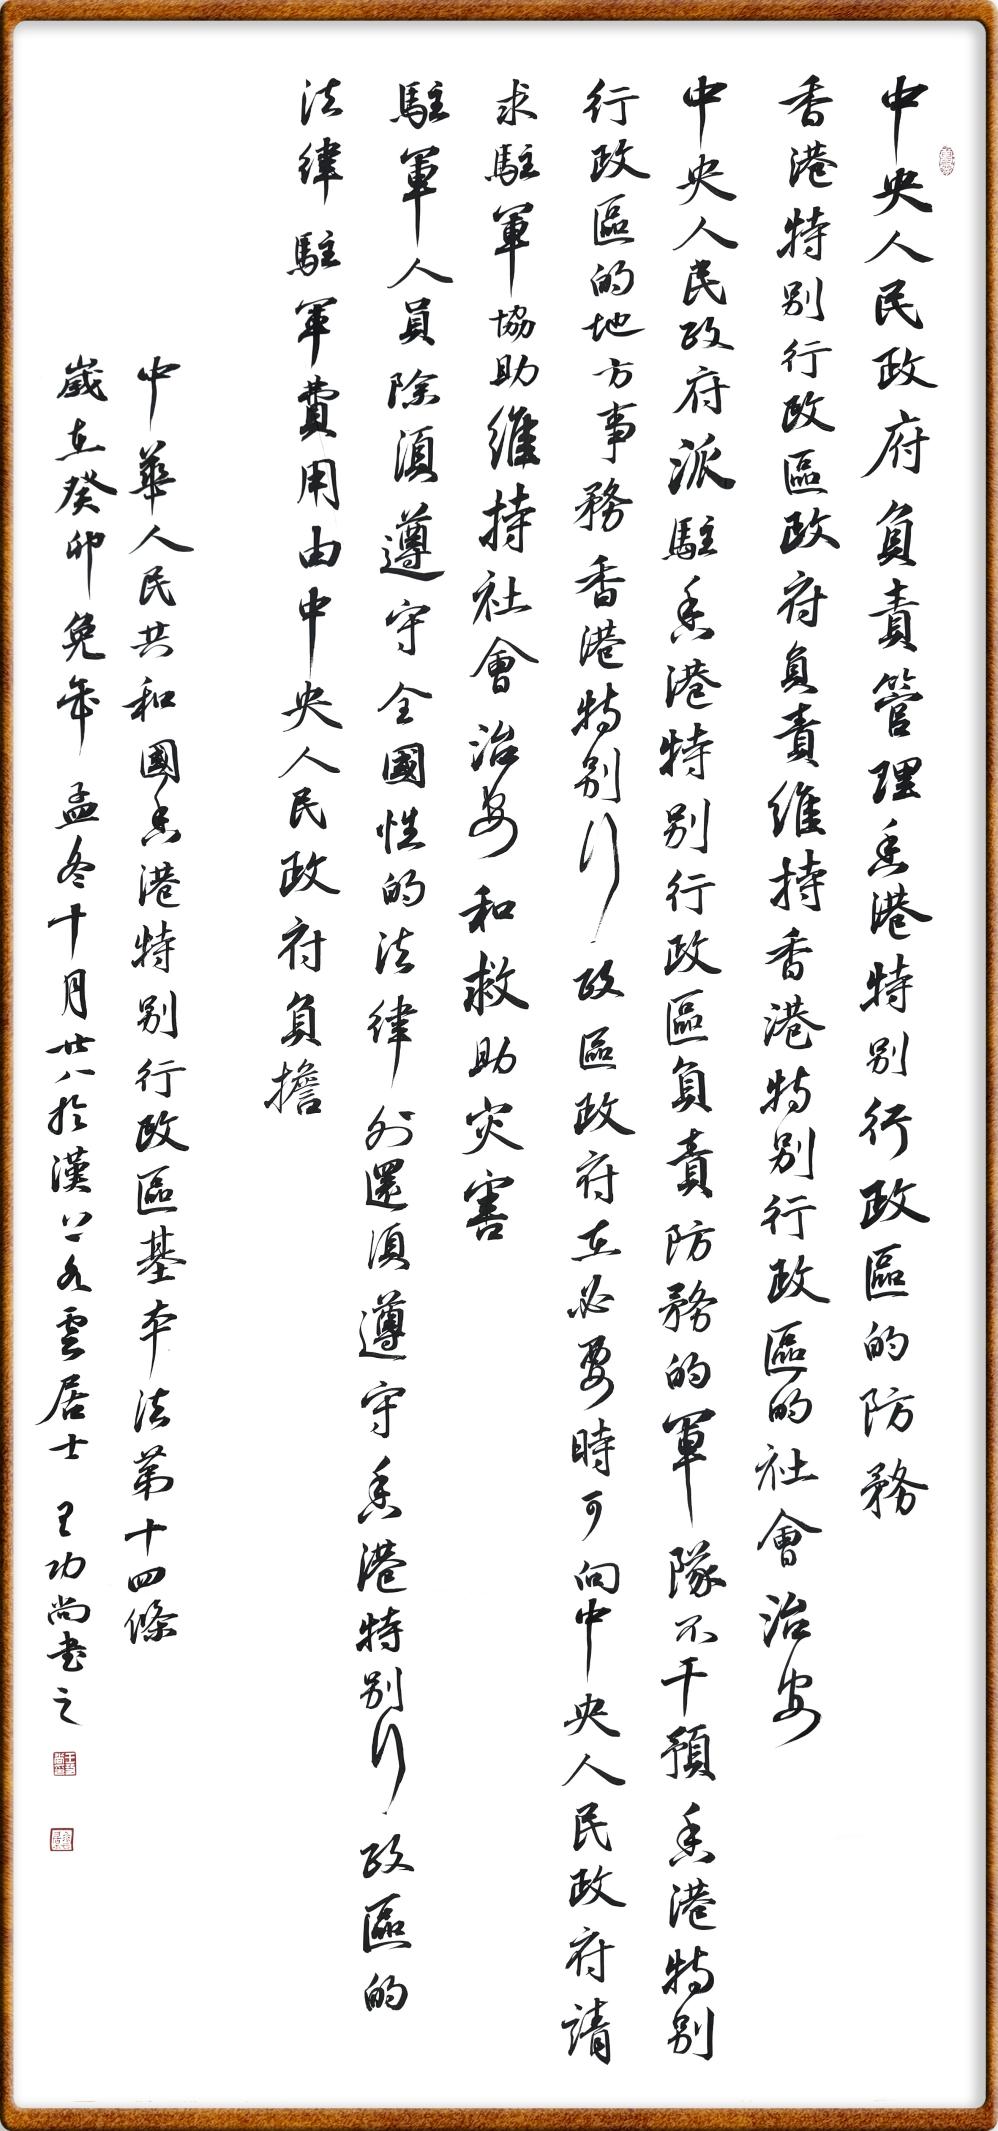 中央人民政府負責管理香港特别行政區的防務
香港特别行政區政府負責維持香港特别行政區的社會治安
中央人民政府派駐香港特别行政區負責防務的軍隊不干預香港特别
行政區的地方事務香港特别行政區政府在必要時可向中央人民政府請
求駐軍協助維持社會治安和救助灾害
駐軍人員除須遵守全國性的法律外還須遵守香港特别行政區的
法律駐軍費用由中央人民政府負擔
中華人民共和國香港特别行政區基本法第十四條
歲在癸卯兔年孟冬十月廿八於漢上名雲居士王功尚書之